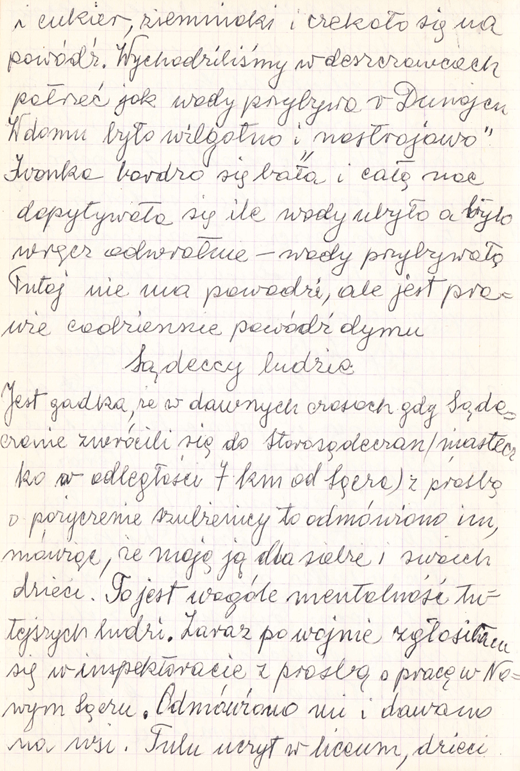 i cukier, ziemniaki i czekało się na
powódź. Wychodziliśmy w deszczowcach
patrzeć jak wody przybywa v Dunajcu
W domu było wilgotno i "nastrojowo"
Iwonka bardzo się bała i całą noc
dopytywała się ile wody ubyło a było
wręcz odwrotnie – wody przybywało
Tutaj nie ma powodzi, ale jest pra=
wie codziennie powódź dymu
Sądeccy ludzie
Jest gadka, że w dawnych czasach gdy Sąde=
czanie zwrócili się do Starosądeczan /miastecz
ko w odległości 7 km od Sącza) z prośbą
o pożyczenie szubienicy to odmówiono im,
mówiąc, że mają ją dla siebie i swoich
dzieci. To jest wogóle mentalność tu-
tejszych ludzi. Zaraz po wojnie zgłosiłam
się w inspektoracie z prośbą o pracę w No=
wym Sączu. Odmówiono mi i dawano
na wsi. Tulu uczył w liceum, dzieci